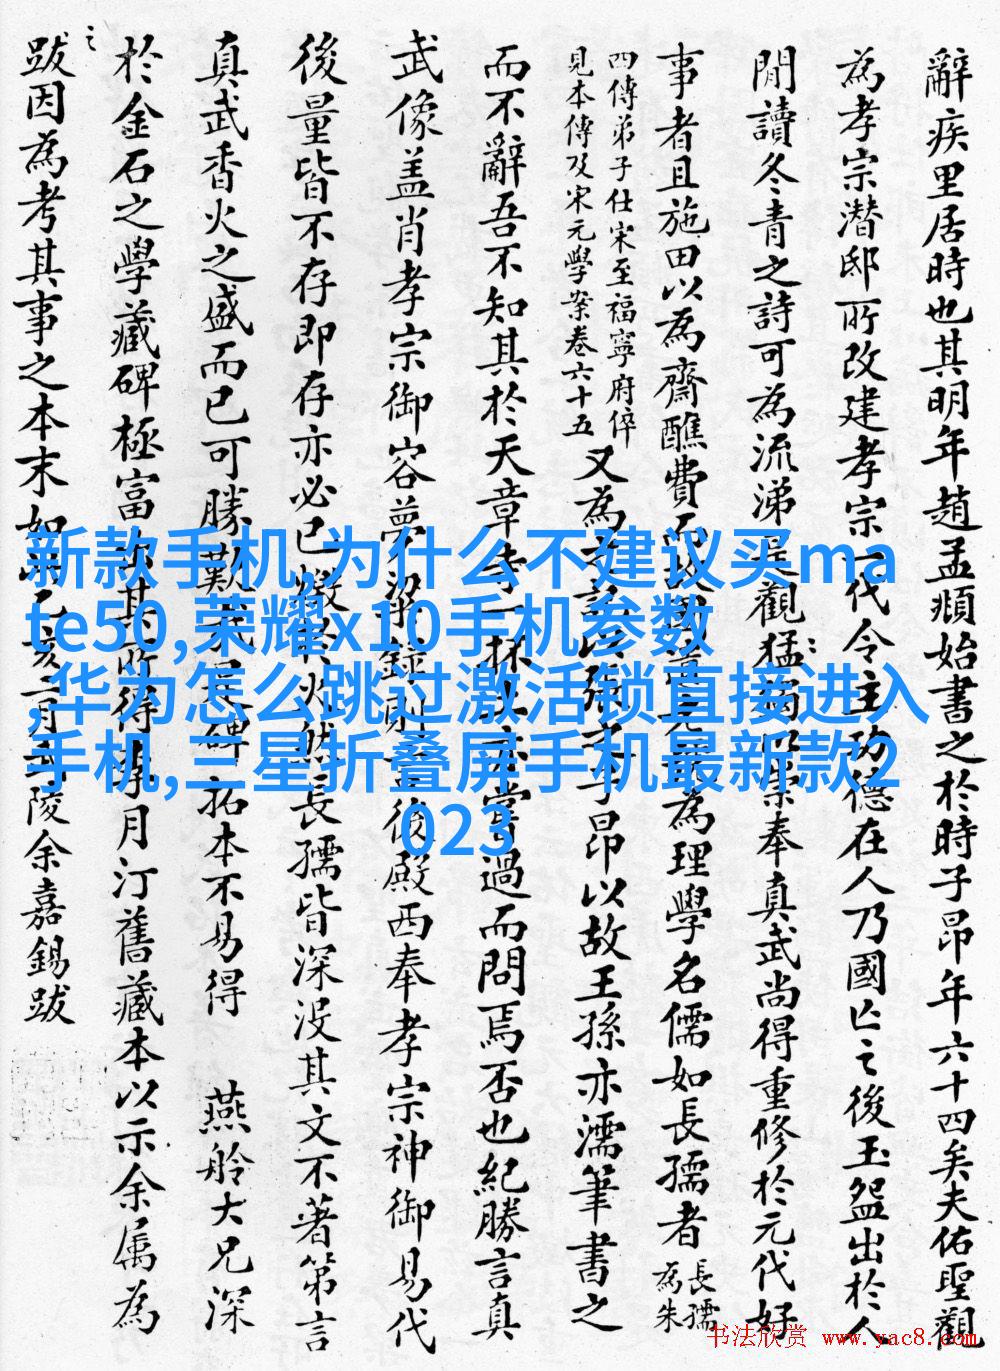 辭疾里居時也其明年趙孟頫始書之於時子昂年六十四矣夫佑聖觀
為孝宗潛邸所改建孝宗一代令主功德在人乃國亡之後玉盌出於人
間讀冬青之詩可為流涕是觀猛㓜以崇奉真武尚得重修於元代好
事者且施田以為齋醮費而以為理學名儒如長孺者
長孺
為朱
四傳弟子仕宋至福寧府倅
見本傳及宋元學案卷六十五
又為昂以故王孫亦濡筆書之
而不辭吾不知其於天章寺一抔土亦嘗過而問焉否也紀勝言真
武像盖肖孝宗御容夢梁錄則云後殿西奉孝宗神御易代
後量皆不存即存亦必已長孺皆深沒其文不著第言
真武香火之盛而已可勝歎哉是碑拓本不易得 燕舲大兄深
於金石之學藏碑極富以其所得李月汀舊藏本以示余属為
跋因為考其事之本末如乙亥一月武陵余嘉錫跋
之
新款手机,为什么不建议买ma
te50,荣耀x10手机参数
,华为怎么跳过激活锁直接进入
手机,三星折叠屏手机最新款2
023
书法欣赏 www.yac8.com